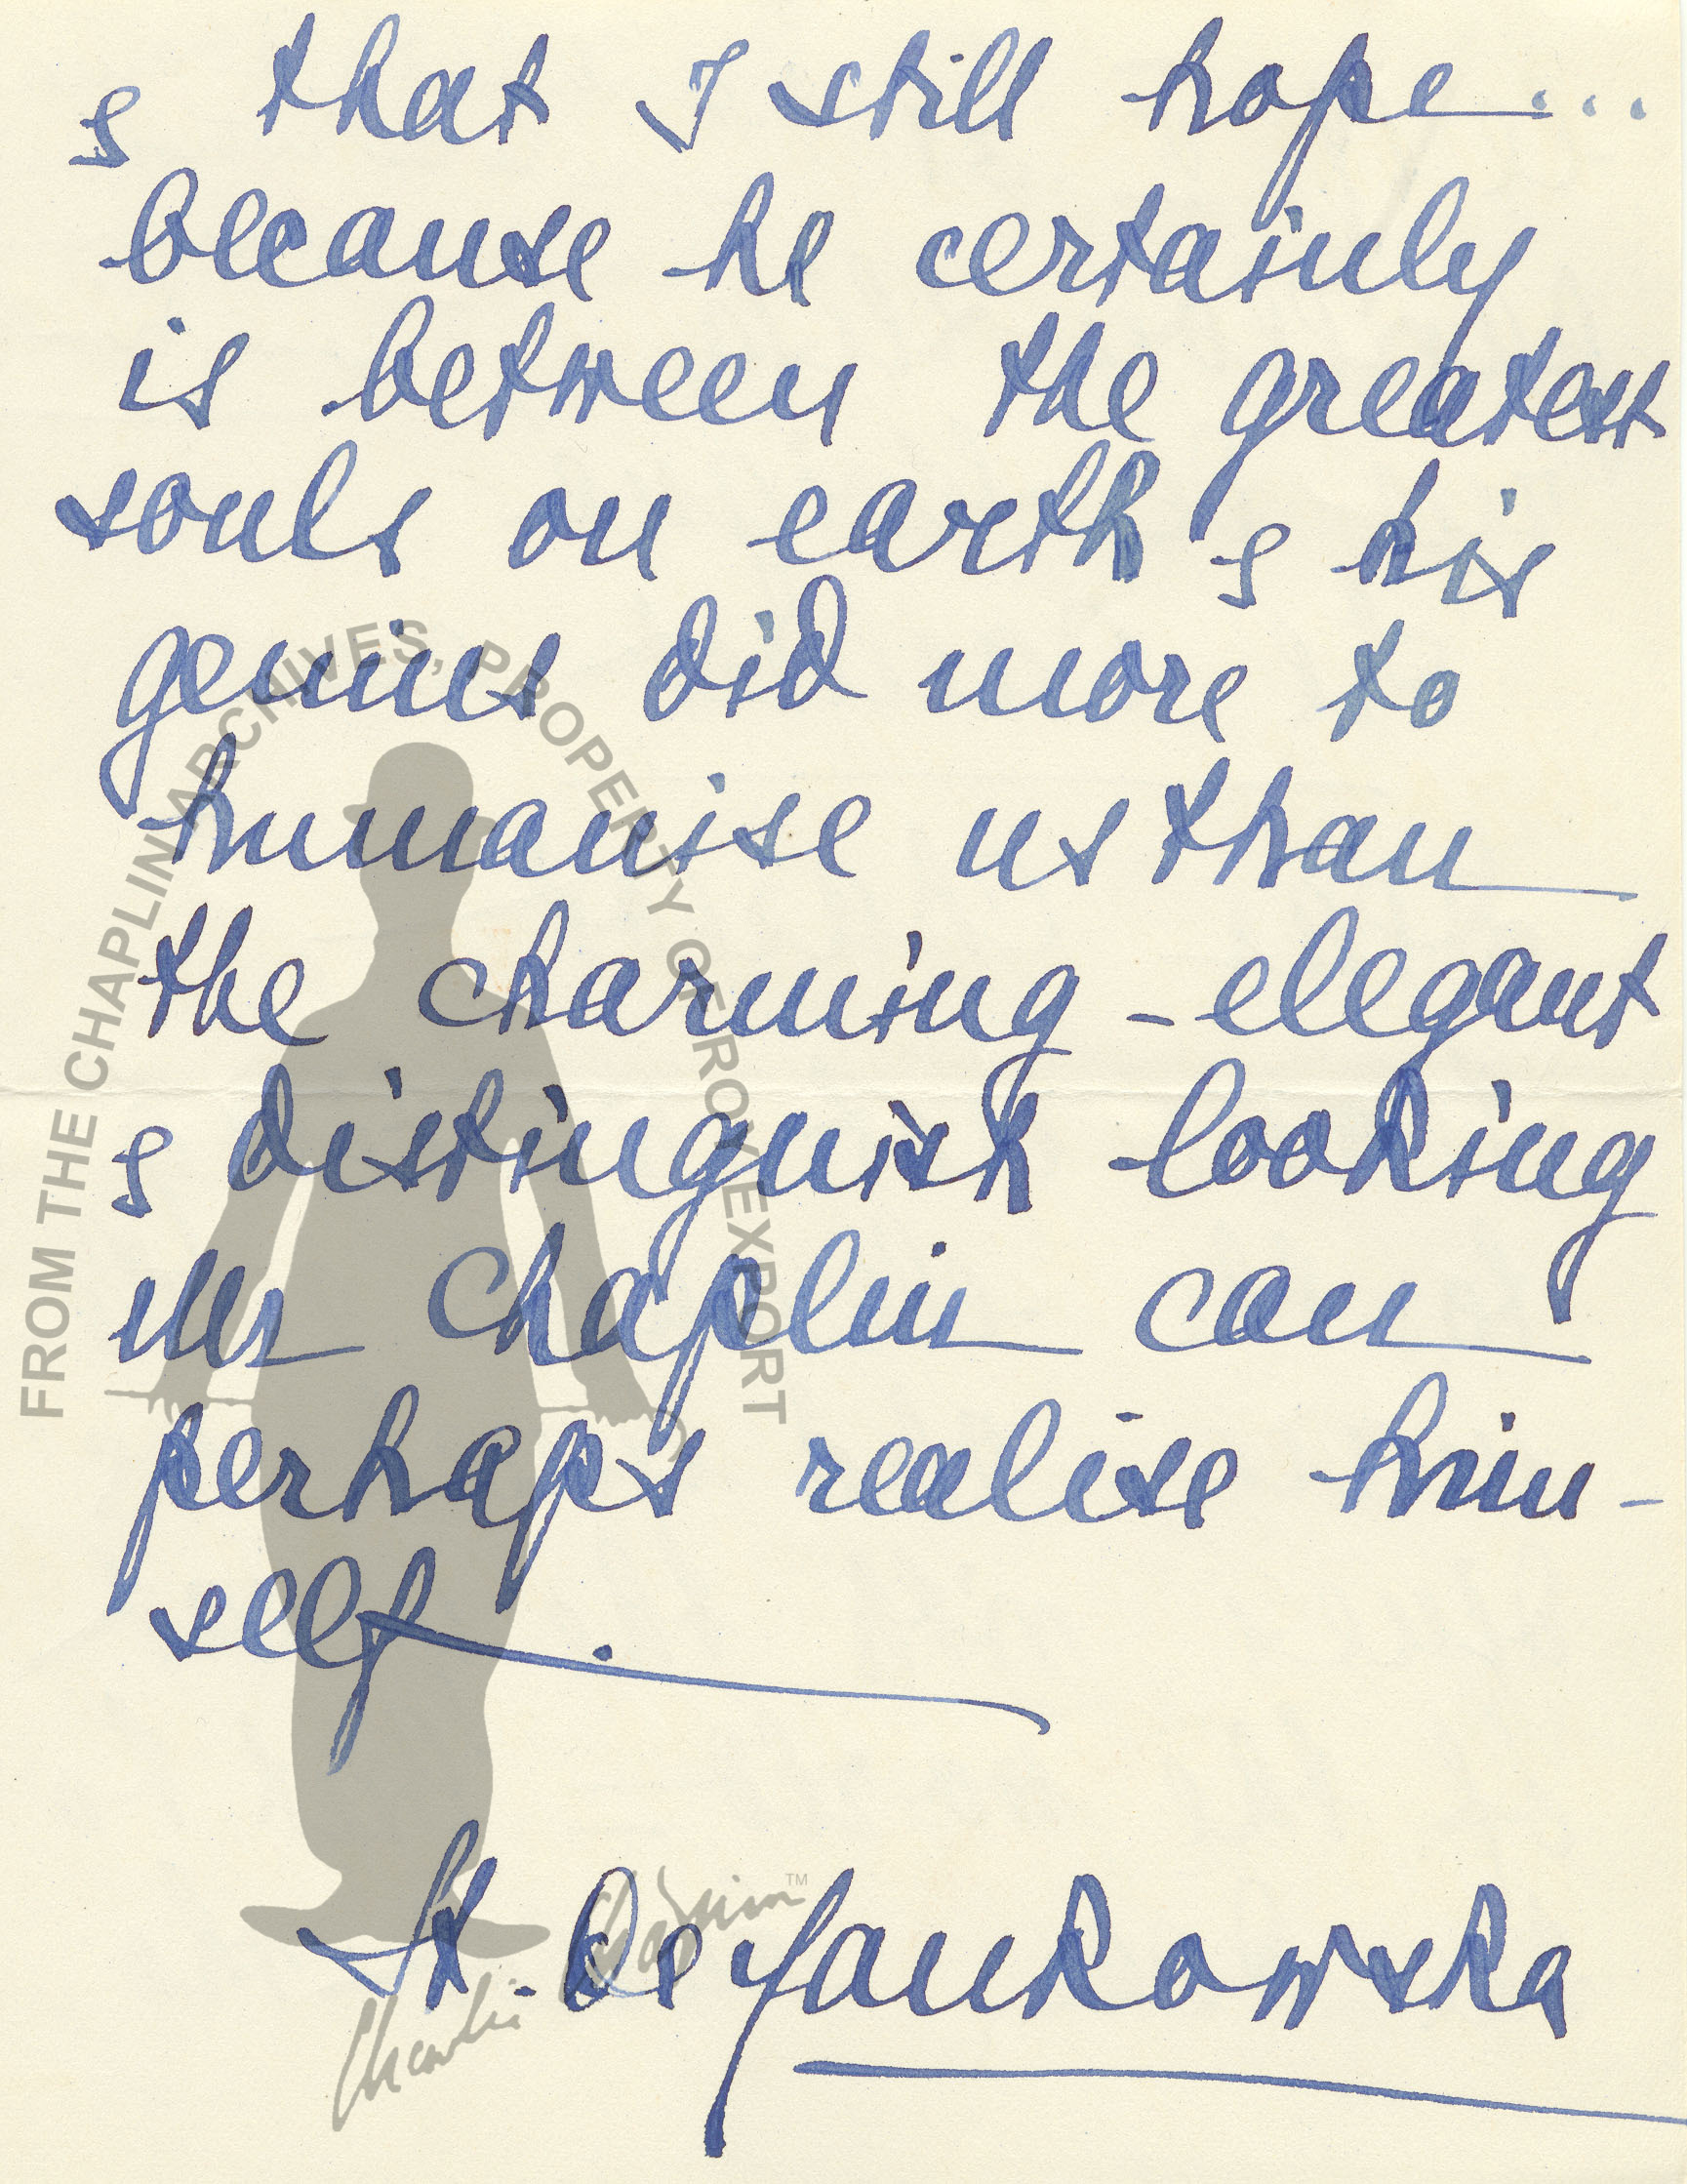 & that I still hope...
because he certainly
is between the greatest
souls on earth & his
genius did more to
humanise us than
the charming - elegant
& distinguish looking
Mr Chaplin can
perhaps realise him-
self.
St. De Jankowska
FROM THE CHAPLIN ARCHIVES, PROPERTY OF ROY EXPORT
Charlie Chaplin ™